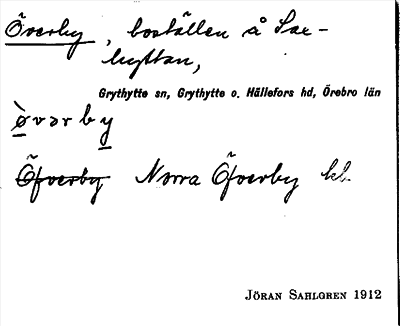 Överby, boställen å Sax-
hyttan,
Grythytte sn, Grythytte o. Hällefors hd, Örebro län
ø̀vərby
Öfverby Norra Öfverby kb.
JÖRAN SAHLGREN 1912